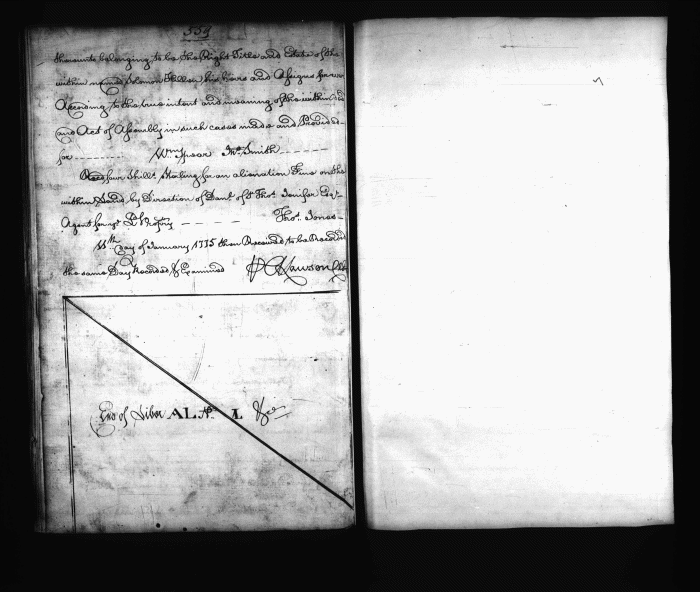 559
thereunto belonging to be the Right Title and Estate of the
within named Solomon Hillen his heirs and Assigns for ever
According to the true intent and meaning of the within
and Act of Assembly in such cases made and Provided
for Wm Spear Jno. Smith
Recd four Shills. Sterling for an alienation Fine on the
within by Direction of Danl. of St. Thos. Jenifer Esqr.
Agent for Ld. Propry Thos. Jones
11th Day of January 1775 then Received to be Recorded
the same Day Recorded & Examined Lawson Clk
End of Liber AL No. I &c